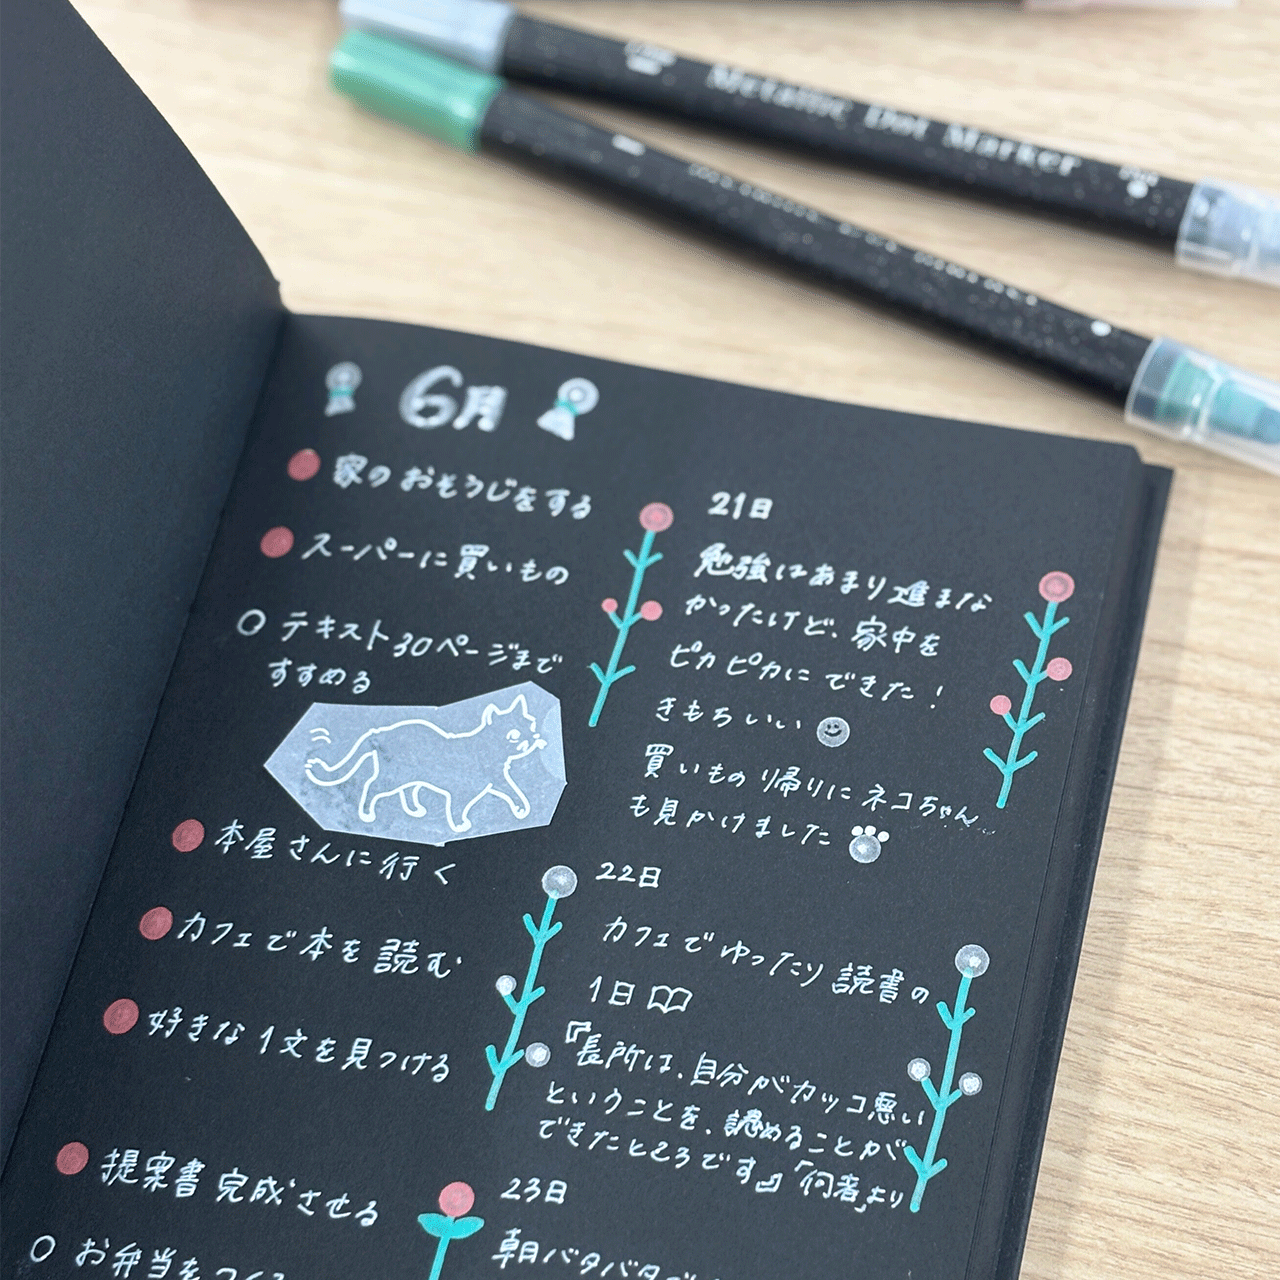 Metallic Dot Marker
6月
家のおそうじをする
スーパーに買いもの
テキスト30ページまで
すすめる
本屋さんに行く
カフェで本を読む
好きな1文を見つける
提案書完成させる
お弁当をつくる
21日
勉強はあまり進まな
かったけど、家中を
ピカピカにできた!
きもちいい
買いもの帰りにネコちゃん
も見かけました
22日
カフェでゆったり読書の
1日
『長所は、自分がカッコ悪い
ということを、認めることが
できたところです』「何者」より
23日
朝バタバタで